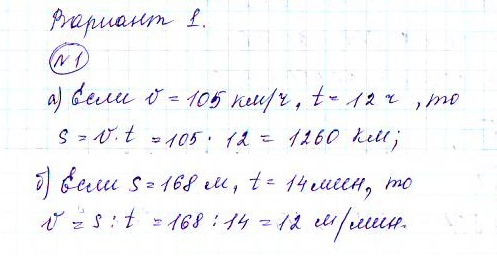 Вариант 1.
№1
а) Если v = 105 км/ч, t = 12 ч, то
s = v · t = 105 · 12 = 1260 км;
б) Если s = 168 м, t = 14 мин, то
v = s : t = 168 : 14 = 12 м/мин.